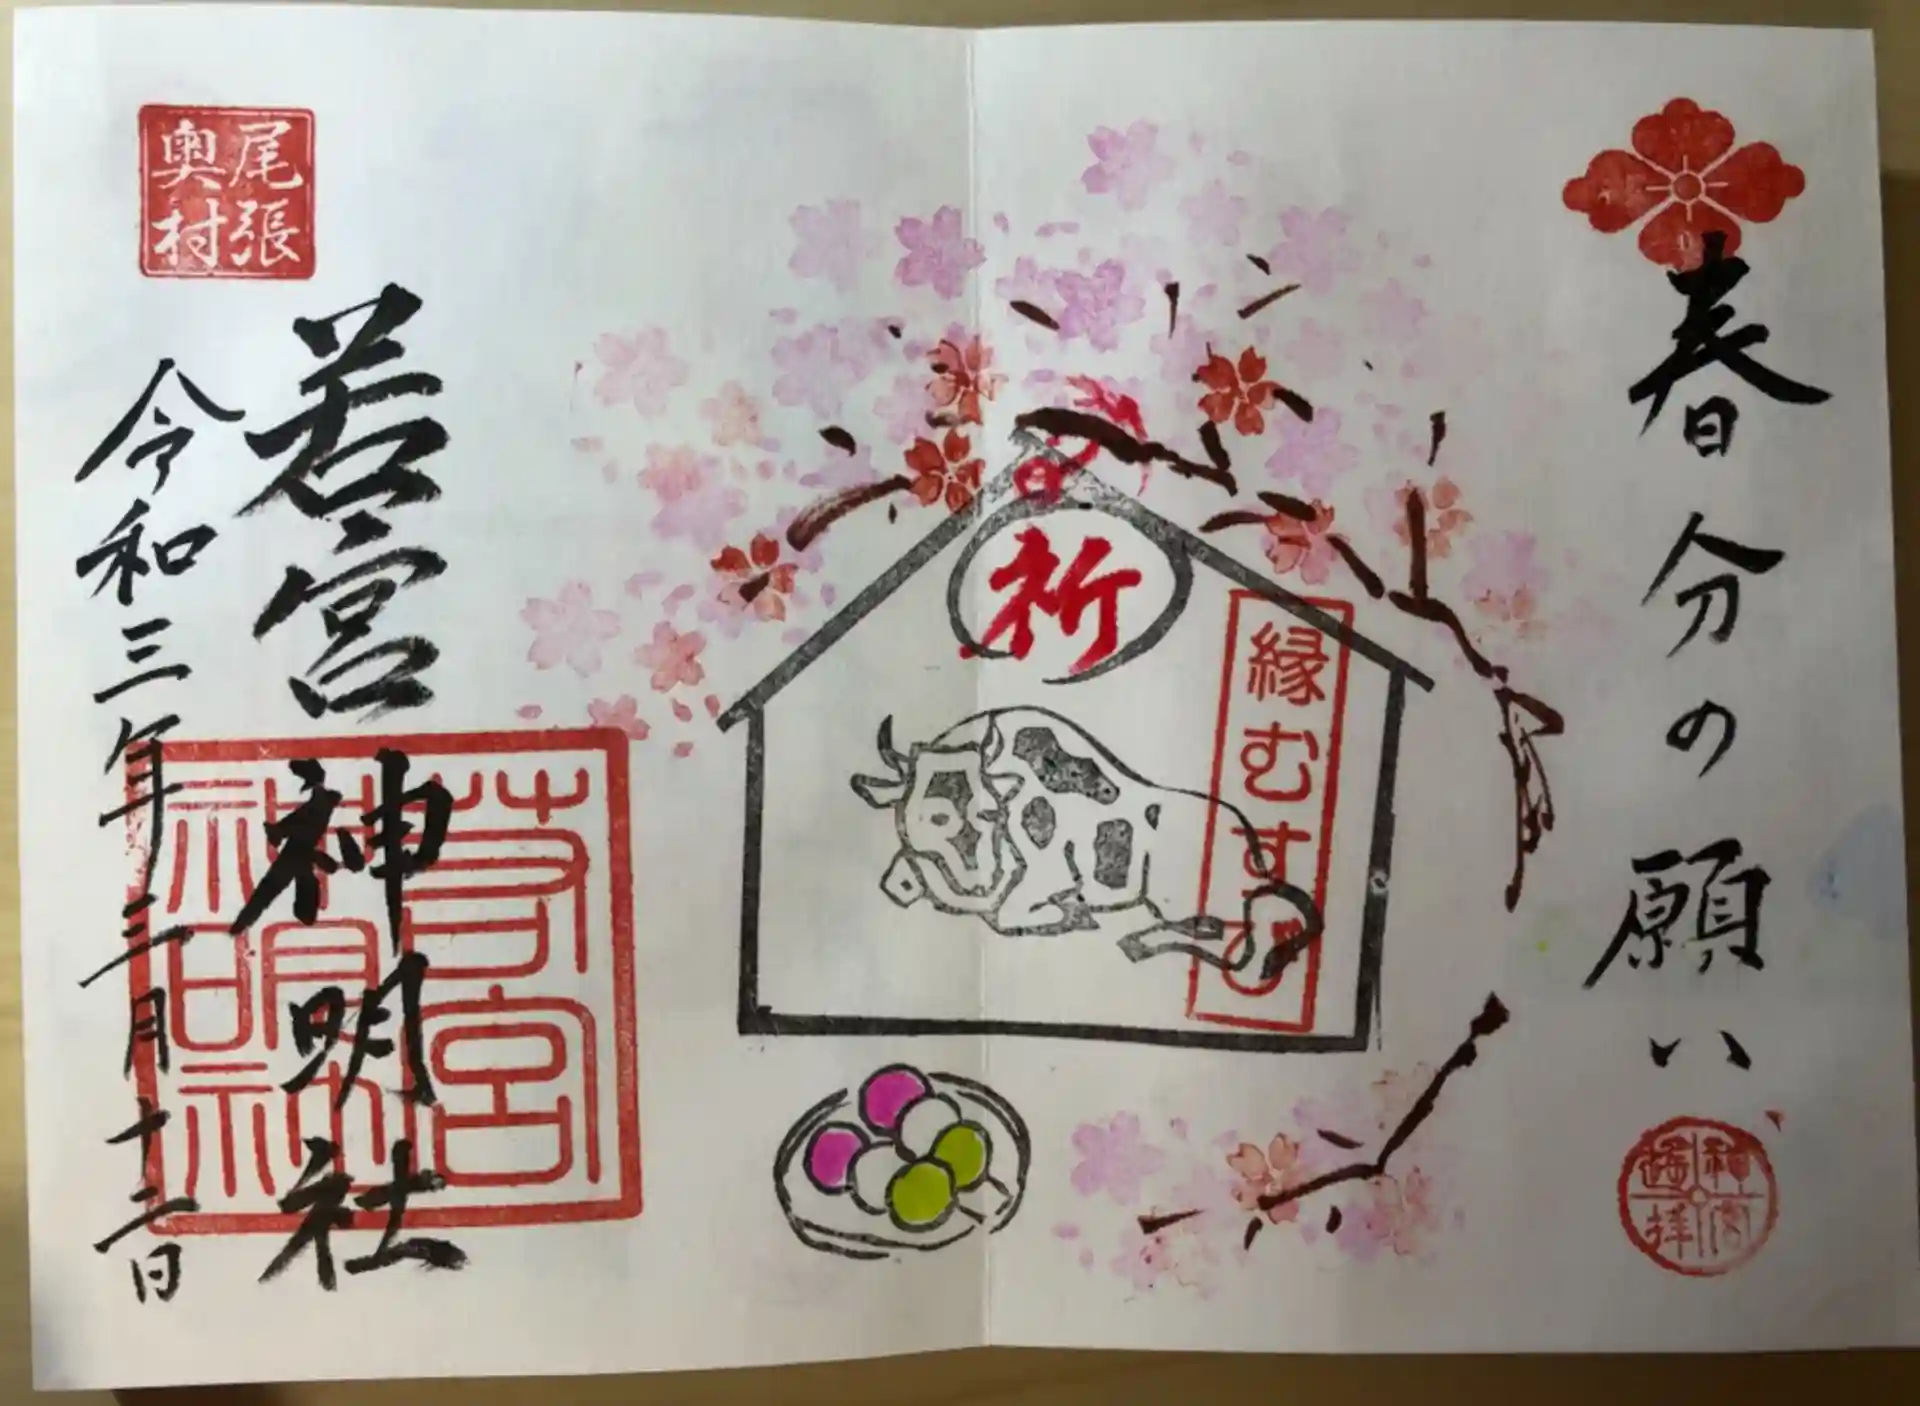 春分の願い
神宮遥拝
祈
縁むすび
尾張
奥村
若宮神明社
若宮
神明社
令和三年三月十二日